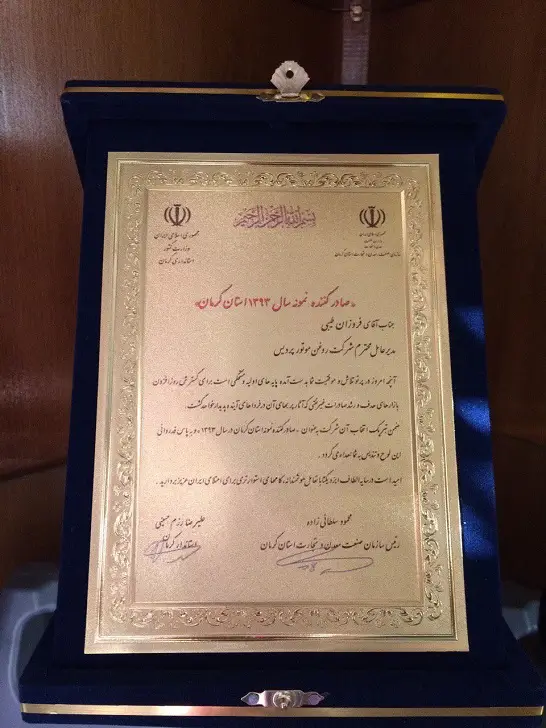 بسم الله الرحمن الرحیم
جمهوری اسلامی ایران
وزارت کشور
استانداری کرمان
جمهوری اسلامی ایران
وزارت صنعت
معدن و تجارت
سازمان صنعت، معدن و تجارت استان کرمان
«صادر کننده نمونه سال ۱۳۹۳ استان کرمان»
جناب آقای فروزان طیبی
مدیرعامل محترم شرکت روغن موتور پردیس
آنچه امروز در پرتو تلاش و موفقیت شما بدست آمده پایه های اولیه و مستحکمی است برای گسترش روزافزون
بازارهای هدف و رشد صادرات غیرنفتی که آثار پربهای آن در فرداهای آینده پدیدار خواهد گشت.
ضمن تبریک انتخاب آن شرکت به عنوان «صادر کننده نمونه استان کرمان در سال ۱۳۹۳» و به پاس قدردانی
این لوح و تندیس به شما اهداء می گردد.
امید است در سایه الطاف ایزد یکتا با تعامل هوشمندانه، گامهای استوارتری برای اعتلای ایران عزیز بردارید.
محمود سلطانی زاده
رئیس سازمان صنعت معدن و تجارت استان کرمان
علیرضا رزم حسینی
استاندار کرمان